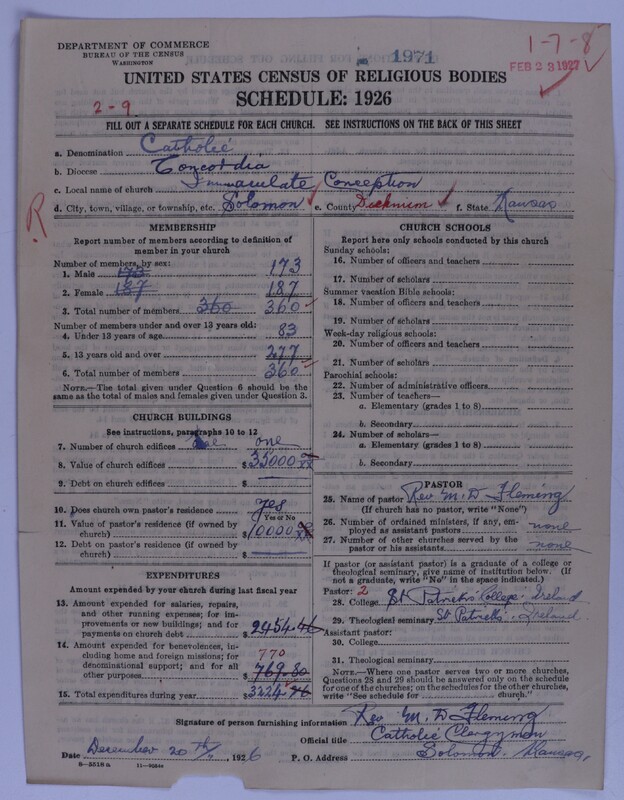 DEPARTMENT OF COMMERCE
BUREAU OF THE CENSUS
WASHINGTON
1971
1-7-8
FEB 23 1927
UNITED STATES CENSUS OF RELIGIOUS BODIES
SCHEDULE: 1926
2-9
FILL OUT A SEPARATE SCHEDULE FOR EACH CHURCH. SEE INSTRUCTIONS ON THE BACK OF THIS SHEET
a. Denomination Catholic
b. Diocese Concordia
c. Local name of church Immaculate Conception
d. City, town, village, or township, etc. Solomon e. County Dickinson f. State Kansas
R
MEMBERSHIP
Report number of members according to definition of
member in your church
Number of members, by sex:
1. Male 173 173
2. Female 187 187
3. Total number of members 360 360
Number of members under and over 13 years old:
4. Under 13 years of age 83
5. 13 years old and over 277
6. Total number of members 360
NOTE.—The total given under Question 6 should be the
same as the total of males and females given under Question 3.
CHURCH BUILDINGS
See instructions, paragraphs 10 to 12
7. Number of church edifices one
8. Value of church edifices $ 35000
9. Debt on church edifices $
10. Does church own pastor's residence yes
Yes or No
11. Value of pastor's residence (if owned by
church) $ 10000
12. Debt on pastor's residence (if owned by
church) $
EXPENDITURES
Amount expended by your church during last fiscal year
13. Amount expended for salaries, repairs,
and other running expenses; for im-
provements or new buildings; and for
payments on church debt $ 2454.46
14. Amount expended for benevolences, in-
cluding home and foreign missions; for
denominational support; and for all
other purposes $ 769.80
770
15. Total expenditures during year $ 3224
CHURCH SCHOOLS
Report here only schools conducted by this church
Sunday schools:
16. Number of officers and teachers
17. Number of scholars
Summer vacation Bible schools:
18. Number of officers and teachers
19. Number of scholars
Week-day religious schools:
20. Number of officers and teachers
21. Number of scholars
Parochial schools:
22. Number of administrative officers
23. Number of teachers—
a. Elementary (grades 1 to 8)
b. Secondary
24. Number of scholars—
a. Elementary (grades 1 to 8)
b. Secondary
PASTOR
25. Name of pastor Rev. M. D. Fleming
(If church has no pastor, write "None")
26. Number of ordained ministers, if any, em-
ployed as assistant pastors none
27. Number of other churches served by the
pastor or his assistants none
If pastor (or assistant pastor) is a graduate of a college or
theological seminary, give name of institution below. (If
not a graduate, write "No" in the space indicated.)
Pastor: 2
28. College St Patricks College. Ireland
29. Theological seminary St Patricks. Ireland.
Assistant pastor:
30. College
31. Theological seminary
NOTE.—Where one pastor serves two or more churches,
Questions 28 and 29 should be answered only on the schedule
for one of the churches; on the schedules for the other churches,
write "See schedule for church."
Signature of person furnishing information Rev. M. D. Fleming
Official title Catholic Clergyman
Date December 20th, 1926 P. O. Address Solomon. Kansas.
8—5518 a